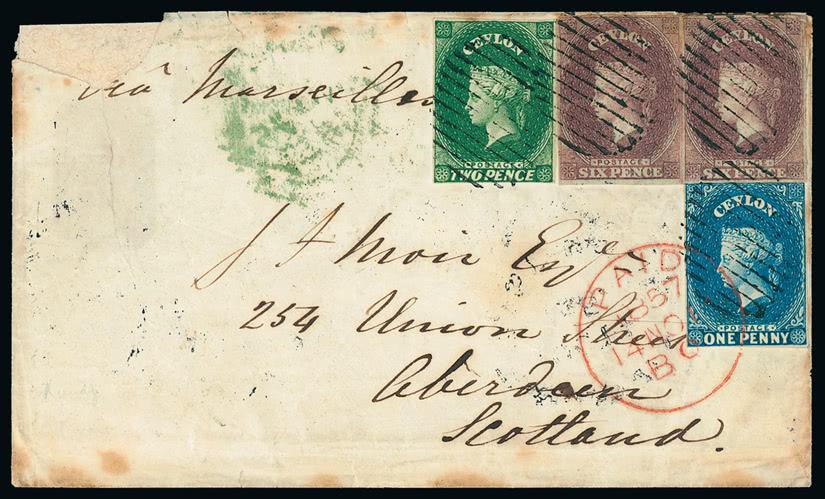 CEYLON
POSTAGE
TWO PENCE
CEYLON
POSTAGE
SIX PENCE
CEYLON
POSTAGE
SIX PENCE
via Marseilles
CEYLON
POSTAGE
ONE PENNY
PAID
14 NO
J A Moir Esqre
254 Union Street
Aberdeen
Scotland.